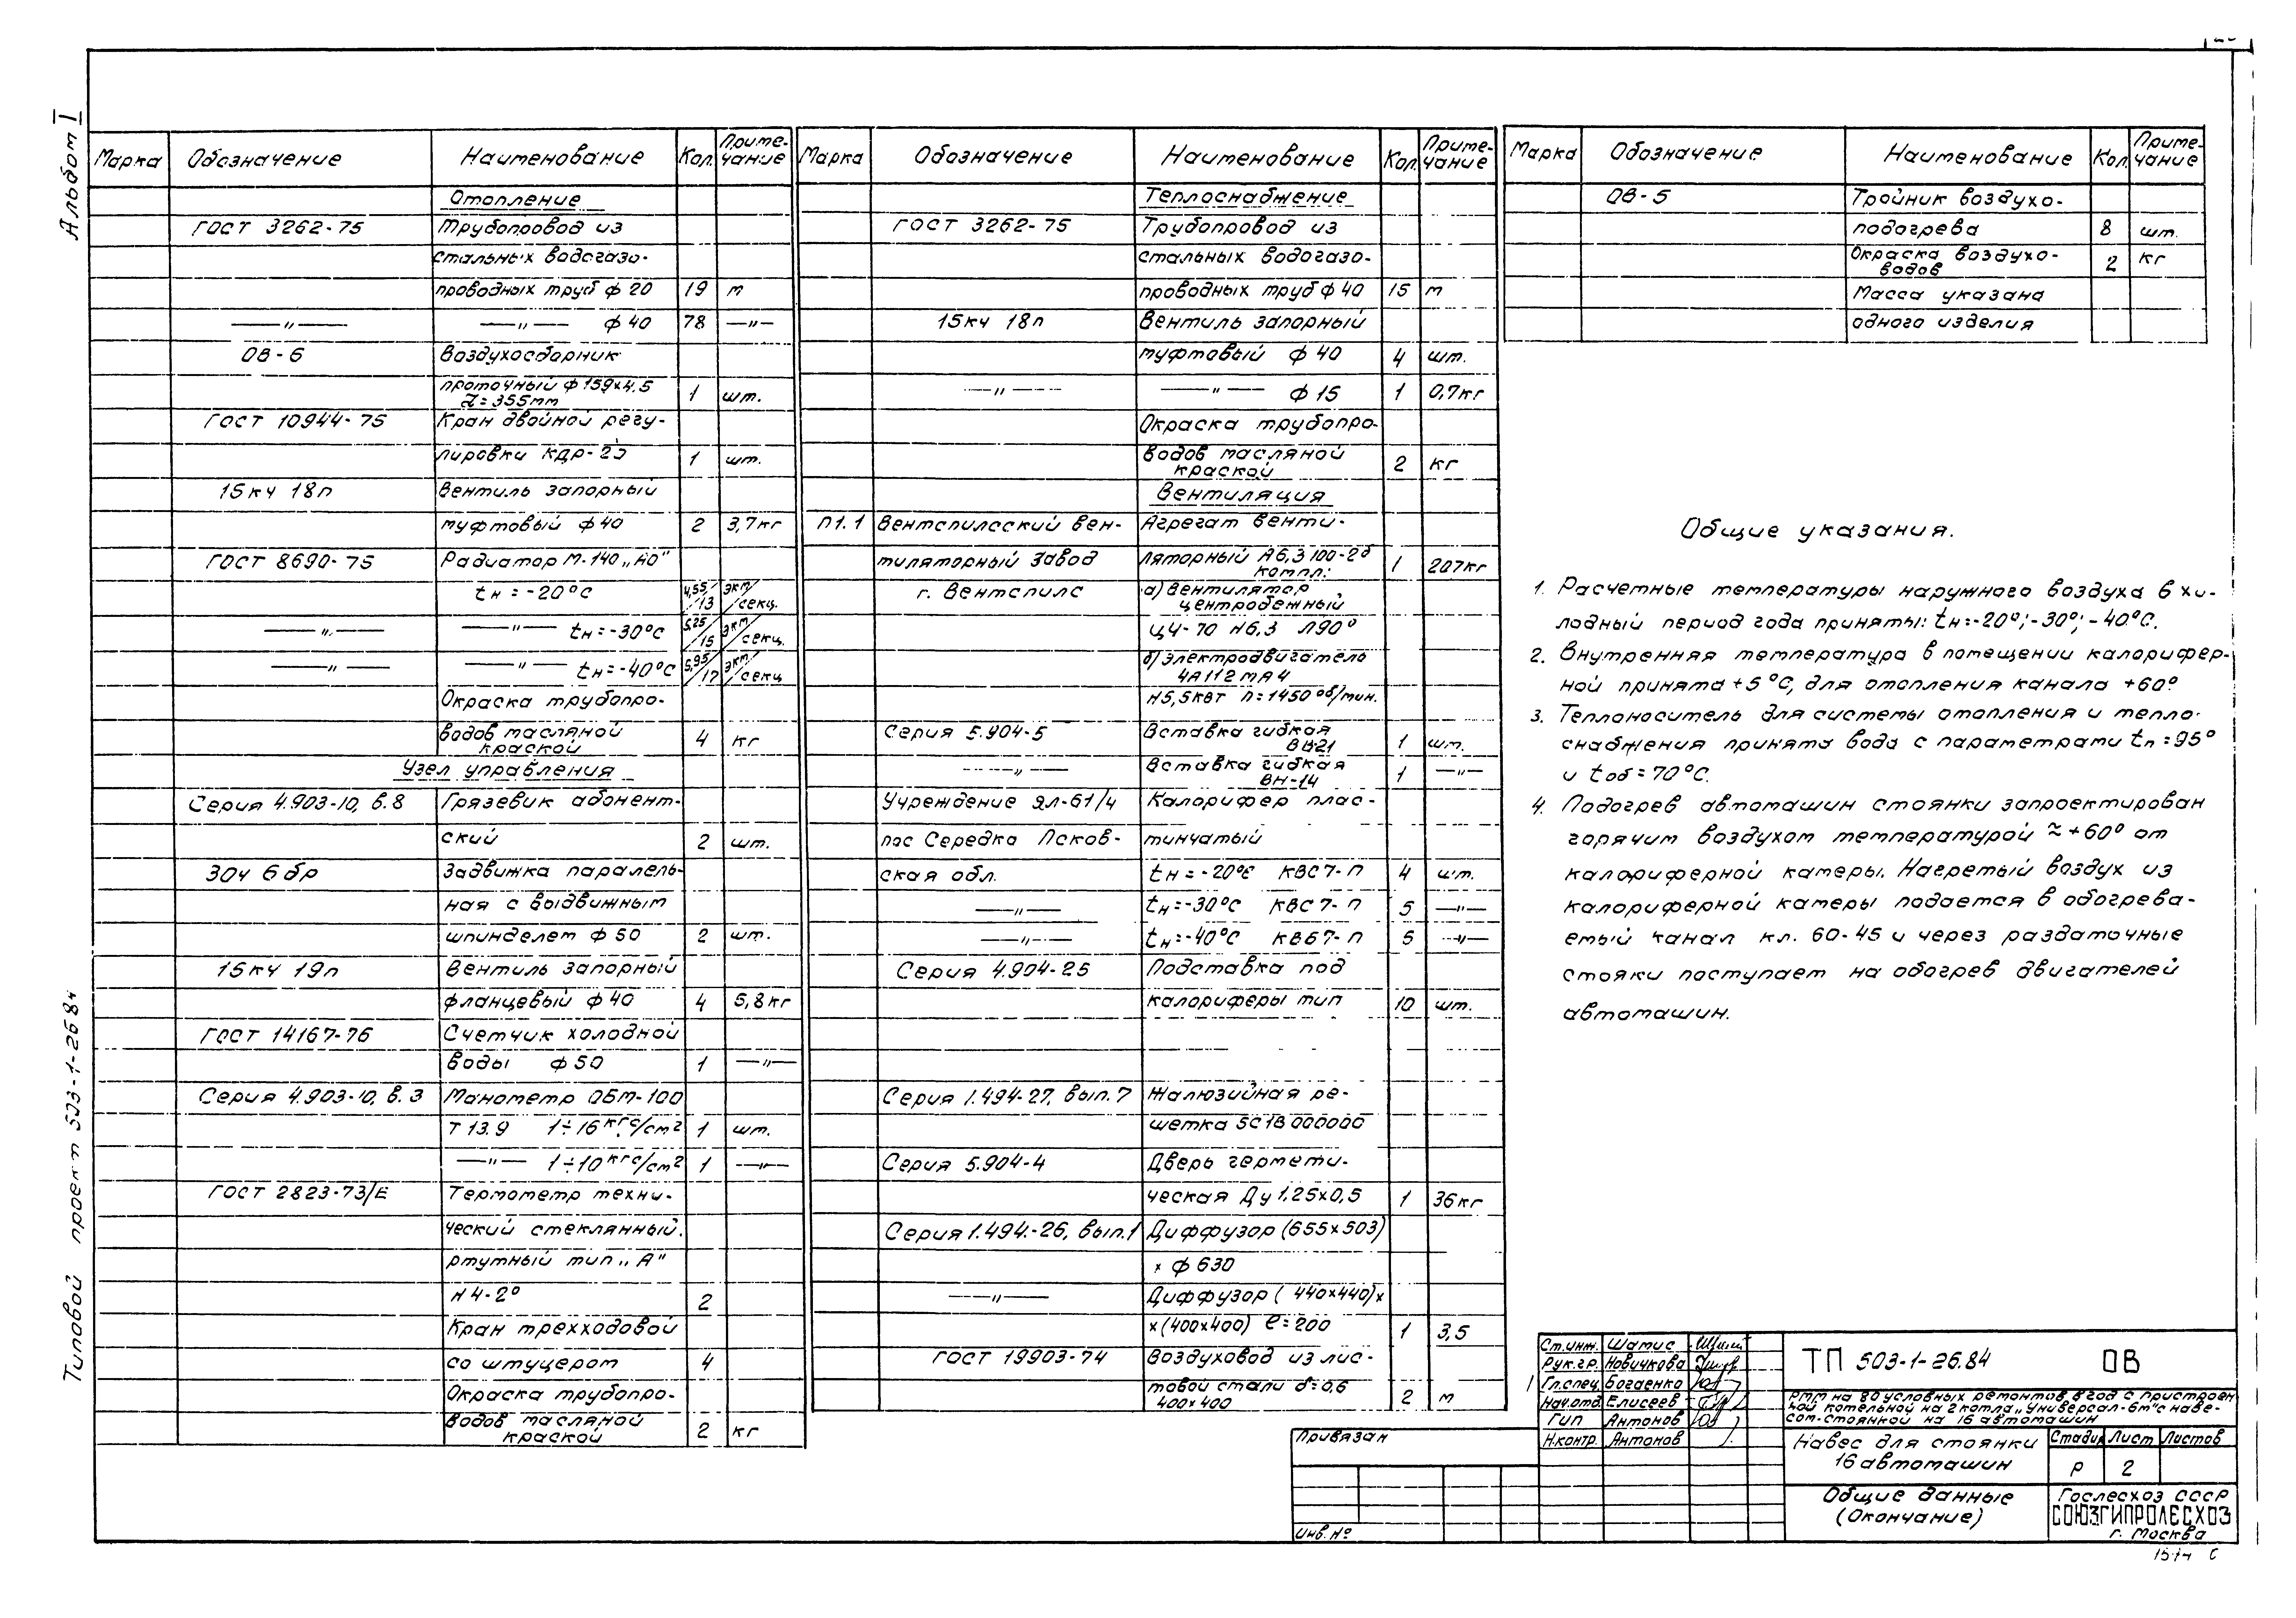 Альбом I
Типовой проект 503-1-26.84
Марка Обозначение Наименование Кол. Приме-чание
Отопление
ГОСТ 3262-75 Трубопровод из
стальных водогазо-
проводных труб ф 20 19 м
—„— —„— ф 40 78 —„—
ОВ-6 Воздухосборник
проточный ф 159х4,5
ℓ=355мм 1 шт.
ГОСТ 10944-75 Кран двойной регу-
лировки КДР-20 1 шт.
15кч 18п Вентиль запорный
муфтовый ф 40 2 3,7кг
ГОСТ 8690-75 Радиатор М-140„АО"
tн=-20°С 4,55/13 экм/секц.
—„— —„— tн=-30°С 5,25/15 экм/секц.
—„— —„— tн=-40°С 5,95/17 экм/секц
Окраска трубопро-
водов масляной
краской 4 кг
Узел управления
Серия 4.903-10, в.8 Грязевик абонент-
ский 2 шт.
30ч 6бр Задвижка паралель-
ная с выдвижным
шпинделем ф 50 2 шт.
15кч 19п Вентиль запорный
фланцевый ф 40 4 5,8кг
ГОСТ 14167-76 Счетчик холодной
воды ф 50 1 —„—
Серия 4.903-10, в.3 Манометр ОБМ-100
Т 13.9 1÷16 кгс/см² 1 шт.
—„— 1÷10 кгс/см² 1 —„—
ГОСТ 2823-73/Е Термометр техни-
ческий стеклянный.
ртутный тип„А"
N 4-2° 2
Кран трехходовой
со штуцером 4
Окраска трубопро-
водов масляной
краской 2 кг
Марка Обозначение Наименование Кол. Приме-чание
Теплоснабжение
ГОСТ 3262-75 Трубопровод из
стальных водогазо-
проводных труб ф 40 15 м
15кч 18п Вентиль запорный
муфтовый ф 40 4 шт.
—„— —„— ф 15 1 0,7кг
Окраска трубопро-
водов масляной
краской 2 кг
Вентиляция
П1.1 Вентспилсский вен- Агрегат венти-
тиляторный завод ляторный А6,3 100-2б
компл: 1 207кг
г. Вентспилс а) вентилятор
центробежный
Ц4-70 N6,3 Л90°
б) электродвигатель
4А112МА4
N5,5квт п=1450 об/мин.
Серия 5.904-5 Вставка гибкая
ВВ21 1 шт.
—„— Вставка гибкая
ВН-14 1 —„—
Учреждение ЯЛ-61/4 Калорифер плас-
пос Середка Псков- тинчатый
ская обл. tн=-20°С КВС7-П 4 шт.
—„— tн=-30°С КВС7-П 5 —„—
—„— tн=-40°С КВБ7-П 5 —„—
Серия 4.904-25 Подставка под
калориферы тип 10 шт.
Серия 1.494-27, вып.7 Жалюзийная ре-
шетка 5С1В 000000
Серия 5.904-4 Дверь гермети-
ческая Ду 1,25х0,5 1 36кг
Серия 1.494.-26, вып.1 Диффузор (655х503)
х ф 630
—„— Диффузор (440х440)х
х(400х400) ℓ=200 1 3,5
ГОСТ 19903-74 Воздуховод из лис-
товой стали δ=0,6
400х400 2 м
Марка Обозначение Наименование Кол. Приме-чание
ОВ-5 Тройник воздухо-
подогрева 8 шт.
Окраска воздухо-
водов 2 кг
Масса указана
одного изделия
Общие указания.
1. Расчетные температуры наружного воздуха в хо-
лодный период года приняты: tн=-20°; -30°; -40°С.
2. Внутренняя температура в помещении калорифер-
ной принята +5°С, для отопления канала +60°
3. Теплоноситель для системы отопления и тепло-
снабжения принята вода с параметрами tп=95°
и tоб=70°С.
4. Подогрев автомашин стоянки запроектирован
горячим воздухом температурой ≈+60° от
калориферной камеры. Нагретый воздух из
калориферной камеры подается в обогрева-
емый канал кл. 60-45 и через раздаточные
стояки поступает на обогрев двигателей
автомашин.
Привязан
Инв. №
Ст.инж. Шатис
Рук.гр. Новичкова
Гл.спец. Богаенко
Нач.отд Елисеев
ГИП Антонов
Н.контр. Антонов
ТП 503-1-26.84 ОВ
РММ на 80 условных ремонтов в год с пристроен-
ной котельной на 2 котла„Универсал-6м" с наве-
сом-стоянкой на 16 автомашин
Навес для стоянки
16 автомашин
Стадия Лист Листов
Р 2
Общие данные
(Окончание)
Гослесхоз СССР
СОЮЗГИПРОЛЕСХОЗ
г. Москва